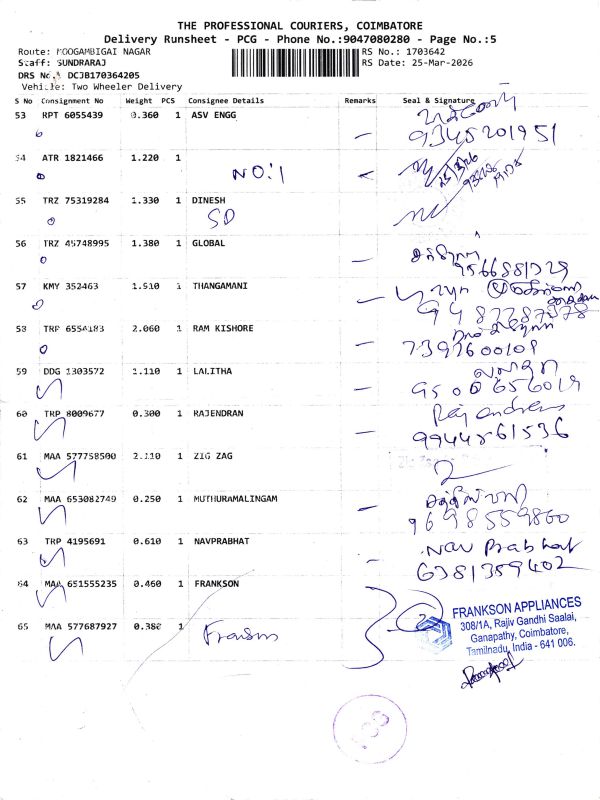 THE PROFESSIONAL COURIERS, COIMBATORE
Delivery Runsheet - PCG - Phone No.:9047080280 - Page No.:5
Route: MOOGAMBIGAI NAGAR RS No.: 1703642
Staff: SUNDRARAJ RS Date: 25-Mar-2026
DRS No.: DCJB170364205
Vehicle: Two Wheeler Delivery
S No Consignment No Weight PCS Consignee Details Remarks Seal & Signature
53 RPT 6055439 0.360 1 ASV ENGG
9345201951
54 ATR 1821466 1.220 1
NO:1 25/3/26
55 TRZ 75319284 1.330 1 DINESH
SD
56 TRZ 45748995 1.380 1 GLOBAL
9566881729
57 KMY 352463 1.510 1 THANGAMANI
9487787378
58 TRP 6554183 2.060 1 RAM KISHORE
7397600109
59 DDG 1303572 1.110 1 LALITHA
9500656019
60 TRP 8009677 0.300 1 RAJENDRAN Rajendran
9944861536
61 MAA 577758500 2.110 1 ZIG ZAG
62 MAA 653082749 0.250 1 MUTHURAMALINGAM
9698559860
63 TRP 4195691 0.610 1 NAVPRABHAT Nav Prabhat
6381359402
64 MAA 651555235 0.460 1 FRANKSON
FRANKSON APPLIANCES
308/1A, Rajiv Gandhi Saalai,
Ganapathy, Coimbatore,
Tamilnadu, India - 641 006.
65 MAA 577687927 0.380 1